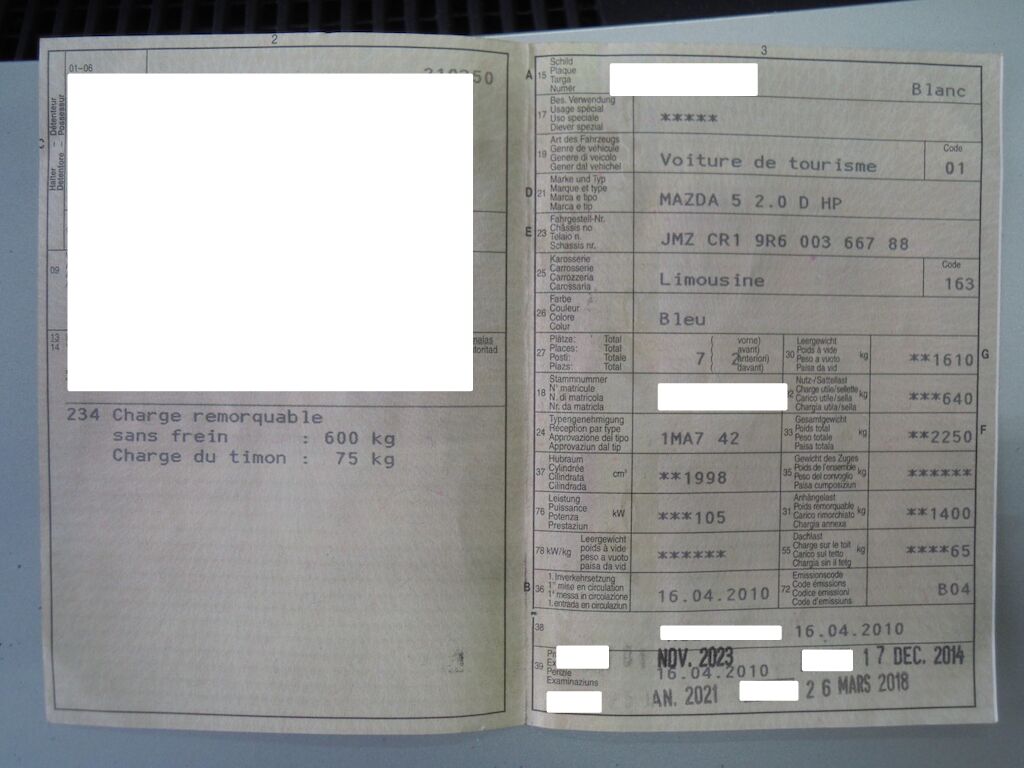 2
01-06
Halter - Détenteur
Detentore - Possessur
C
09
13
14
234 Charge remorquable
sans frein : 600 kg
Charge du timon : 75 kg
3
A 15 Schild
Plaque
Targa
Numer
Blanc
17 Bes. Verwendung
Usage spécial
Uso speciale
Diever spezial
*****
19 Art des Fahrzeugs
Genre de véhicule
Genere di veicolo
Gener dal vehichel
Voiture de tourisme
Code
01
D 21 Marke und Typ
Marque et type
Marca e tipo
Marca e tip
MAZDA 5 2.0 D HP
E 23 Fahrgestell-Nr.
Châssis no
Telaio n.
Schassis nr.
JMZ CR1 9R6 003 667 88
25 Karosserie
Carrosserie
Carrozzeria
Carossaria
Limousine
Code
163
26 Farbe
Couleur
Colore
Colur
Bleu
27 Plätze: Total
Places: Total
Posti: Totale
Plazs: Total
7
vorne)
avant)
anteriori)
davant)
30 Leergewicht
Poids à vide
Peso a vuoto
Paisa da vid
kg
**1610
G
18 Stammnummer
N° matricule
N. di matricola
Nr. da matricla
Nutz-/Sattellast
Charge utile/sellette
Carico utile/sella
Chargia utila/sella
kg
***640
24 Typengenehmigung
Réception par type
Approvazione del tipo
Approvaziun dal tip
1MA7 42
33 Gesamtgewicht
Poids total
Peso totale
Paisa totala
kg
**2250
F
37 Hubraum
Cylindrée
Cilindrata
Cilindrada
cm³
**1998
35 Gewicht des Zuges
Poids de l'ensemble
Peso del convoglio
Paisa cumposiziun
kg
******
76 Leistung
Puissance
Potenza
Prestaziun
kW
***105
31 Anhängelast
Poids remorquable
Carico rimorchiato
Chargia annexa
kg
**1400
78 kW/kg
Leergewicht
poids à vide
peso a vuoto
paisa da vid
******
55 Dachlast
Charge sur le toit
Carico sul tetto
Chargia sin il tetg
kg
****65
B 36 1. Inverkehrsetzung
1re mise en circulation
1a messa in circolazione
1. entrada en circulaziun
16.04.2010
72 Emissionscode
Code émissions
Codice emissioni
Code d'emissiuns
B04
38
16.04.2010
39
Perizie
Examinaziuns
NOV. 2023
16.04.2010
17 DEC. 2014
AN. 2021
26 MARS 2018